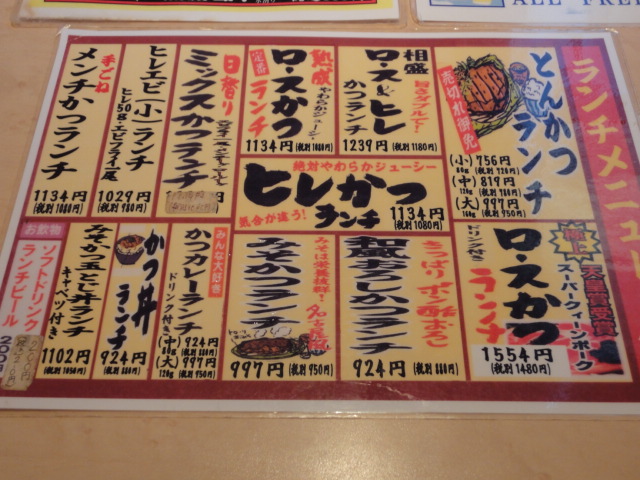 ALL FREE
ランチメニュー
とんかつ
ランチ
売切れ御免
(小) 756円
80g (税別 720円)
(中) 819円
120g (税別 780円)
(大) 997円
160g (税別 950円)
相盛
旨さダブルで!
ロース&ヒレ
かつランチ
1239円 (税別 1180円)
熟成
やわらかジューシー
ロースかつ
定番
ランチ
1134円 (税別 1080円)
日替り
ミックスかつランチ
ヒレエビ(小)ランチ
ヒレ50g・エビフライ一尾
1029円
(税別 980円)
手ごね
メンチかつランチ
1134円
(税別 1080円)
絶対やわらかジューシー
ヒレかつ
気合が違う!
ランチ
1134円
(税別 1080円)
極上
天皇賞受賞
スーパークィーンポーク
ロースかつ
ランチ
ドリンク付き
1554円
(税別 1480円)
さっぱりポン酢おろし
和風おろしかつランチ
924円 (税別 880円)
みそは栄養抜群!
みそかつランチ
997円 (税別 950円)
みんな大好き
かつカレーランチ
ドリンク付き
(中) 924円
80g (税別 880円)
(大) 997円
120g (税別 950円)
かつ丼
ランチ
924円
(税別 880円)
みそかつ玉とじ丼ランチ
キャベツ付き
1102円
(税別 1050円)
お飲物
ソフトドリンク
ランチビール